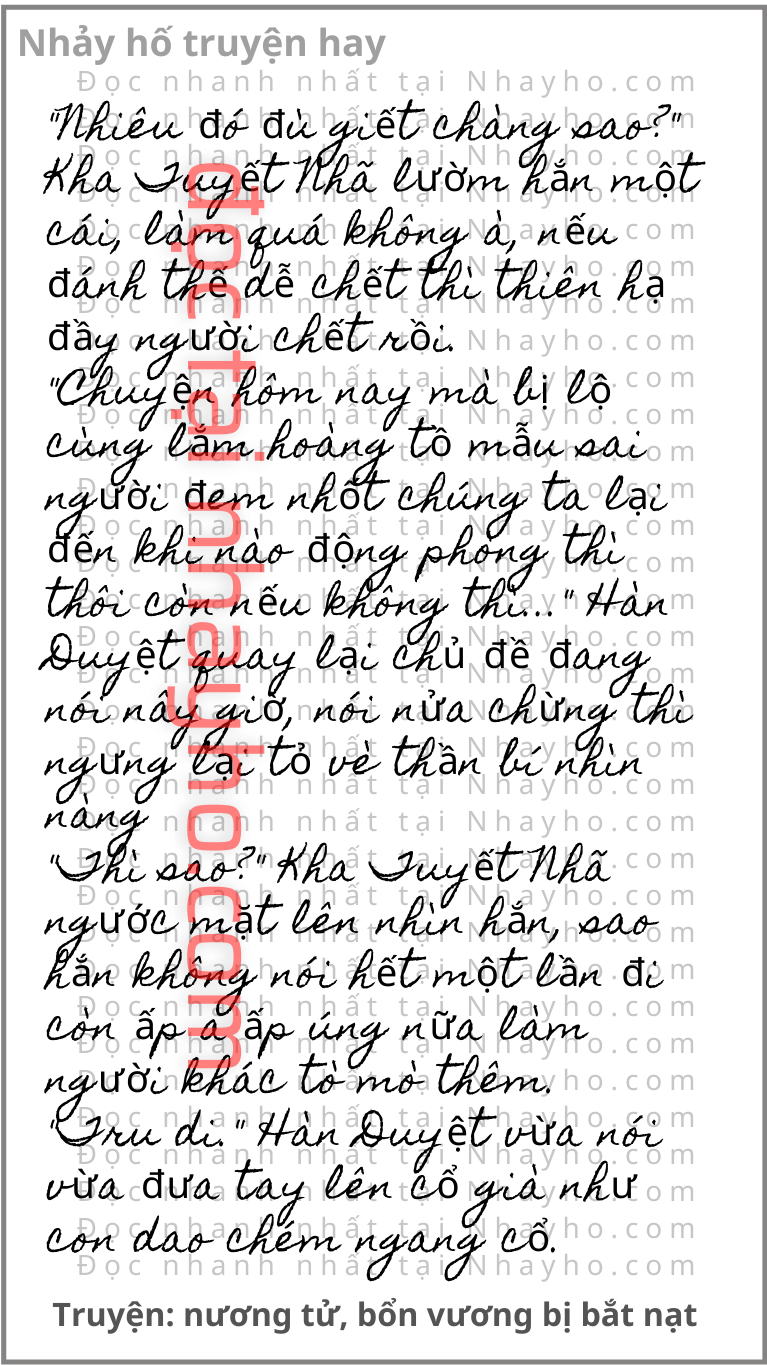 Nhảy hố truyện hay
"Nhiêu đó đủ giết chàng sao?"
Kha Tuyết Nhã lườm hắn một
cái, làm quá không à, nếu
đánh thế dễ chết thì thiên hạ
đầy người chết rồi.
"Chuyện hôm nay mà bị lộ
cùng lắm hoàng tổ mẫu sai
người đem nhốt chúng ta lại
đến khi nào động phòng thì
thôi còn nếu không thì..." Hàn
Duyệt quay lại chủ đề đang
nói nãy giờ, nói nửa chừng thì
ngưng lại tỏ vẻ thần bí nhìn
nàng
"Thì sao?" Kha Tuyết Nhã
ngước mặt lên nhìn hắn, sao
hắn không nói hết một lần đi
còn ấp a ấp úng nữa làm
người khác tò mò thêm.
"Tru di." Hàn Duyệt vừa nói
vừa đưa tay lên cổ giả như
con dao chém ngang cổ.
Truyện: nương tử, bổn vương bị bắt nạt
đọc tại nhayho.com
Đọc nhanh nhất tại Nhayho.com